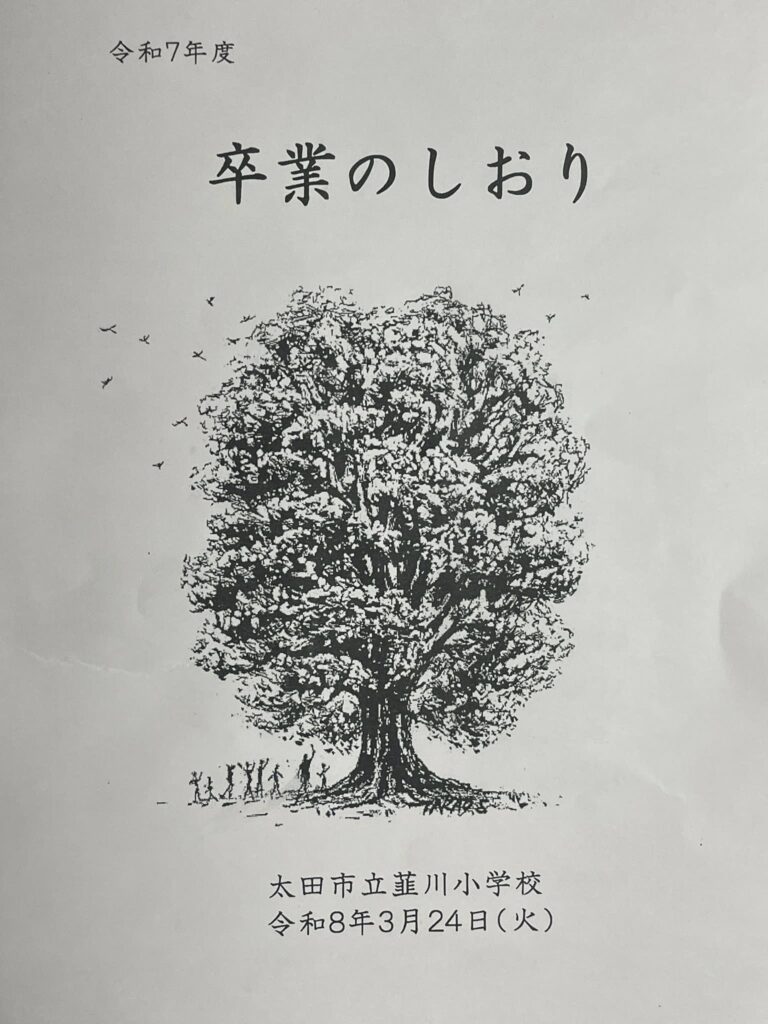 令和7年度
卒業のしおり
太田市立韮川小学校
令和8年3月24日(火)